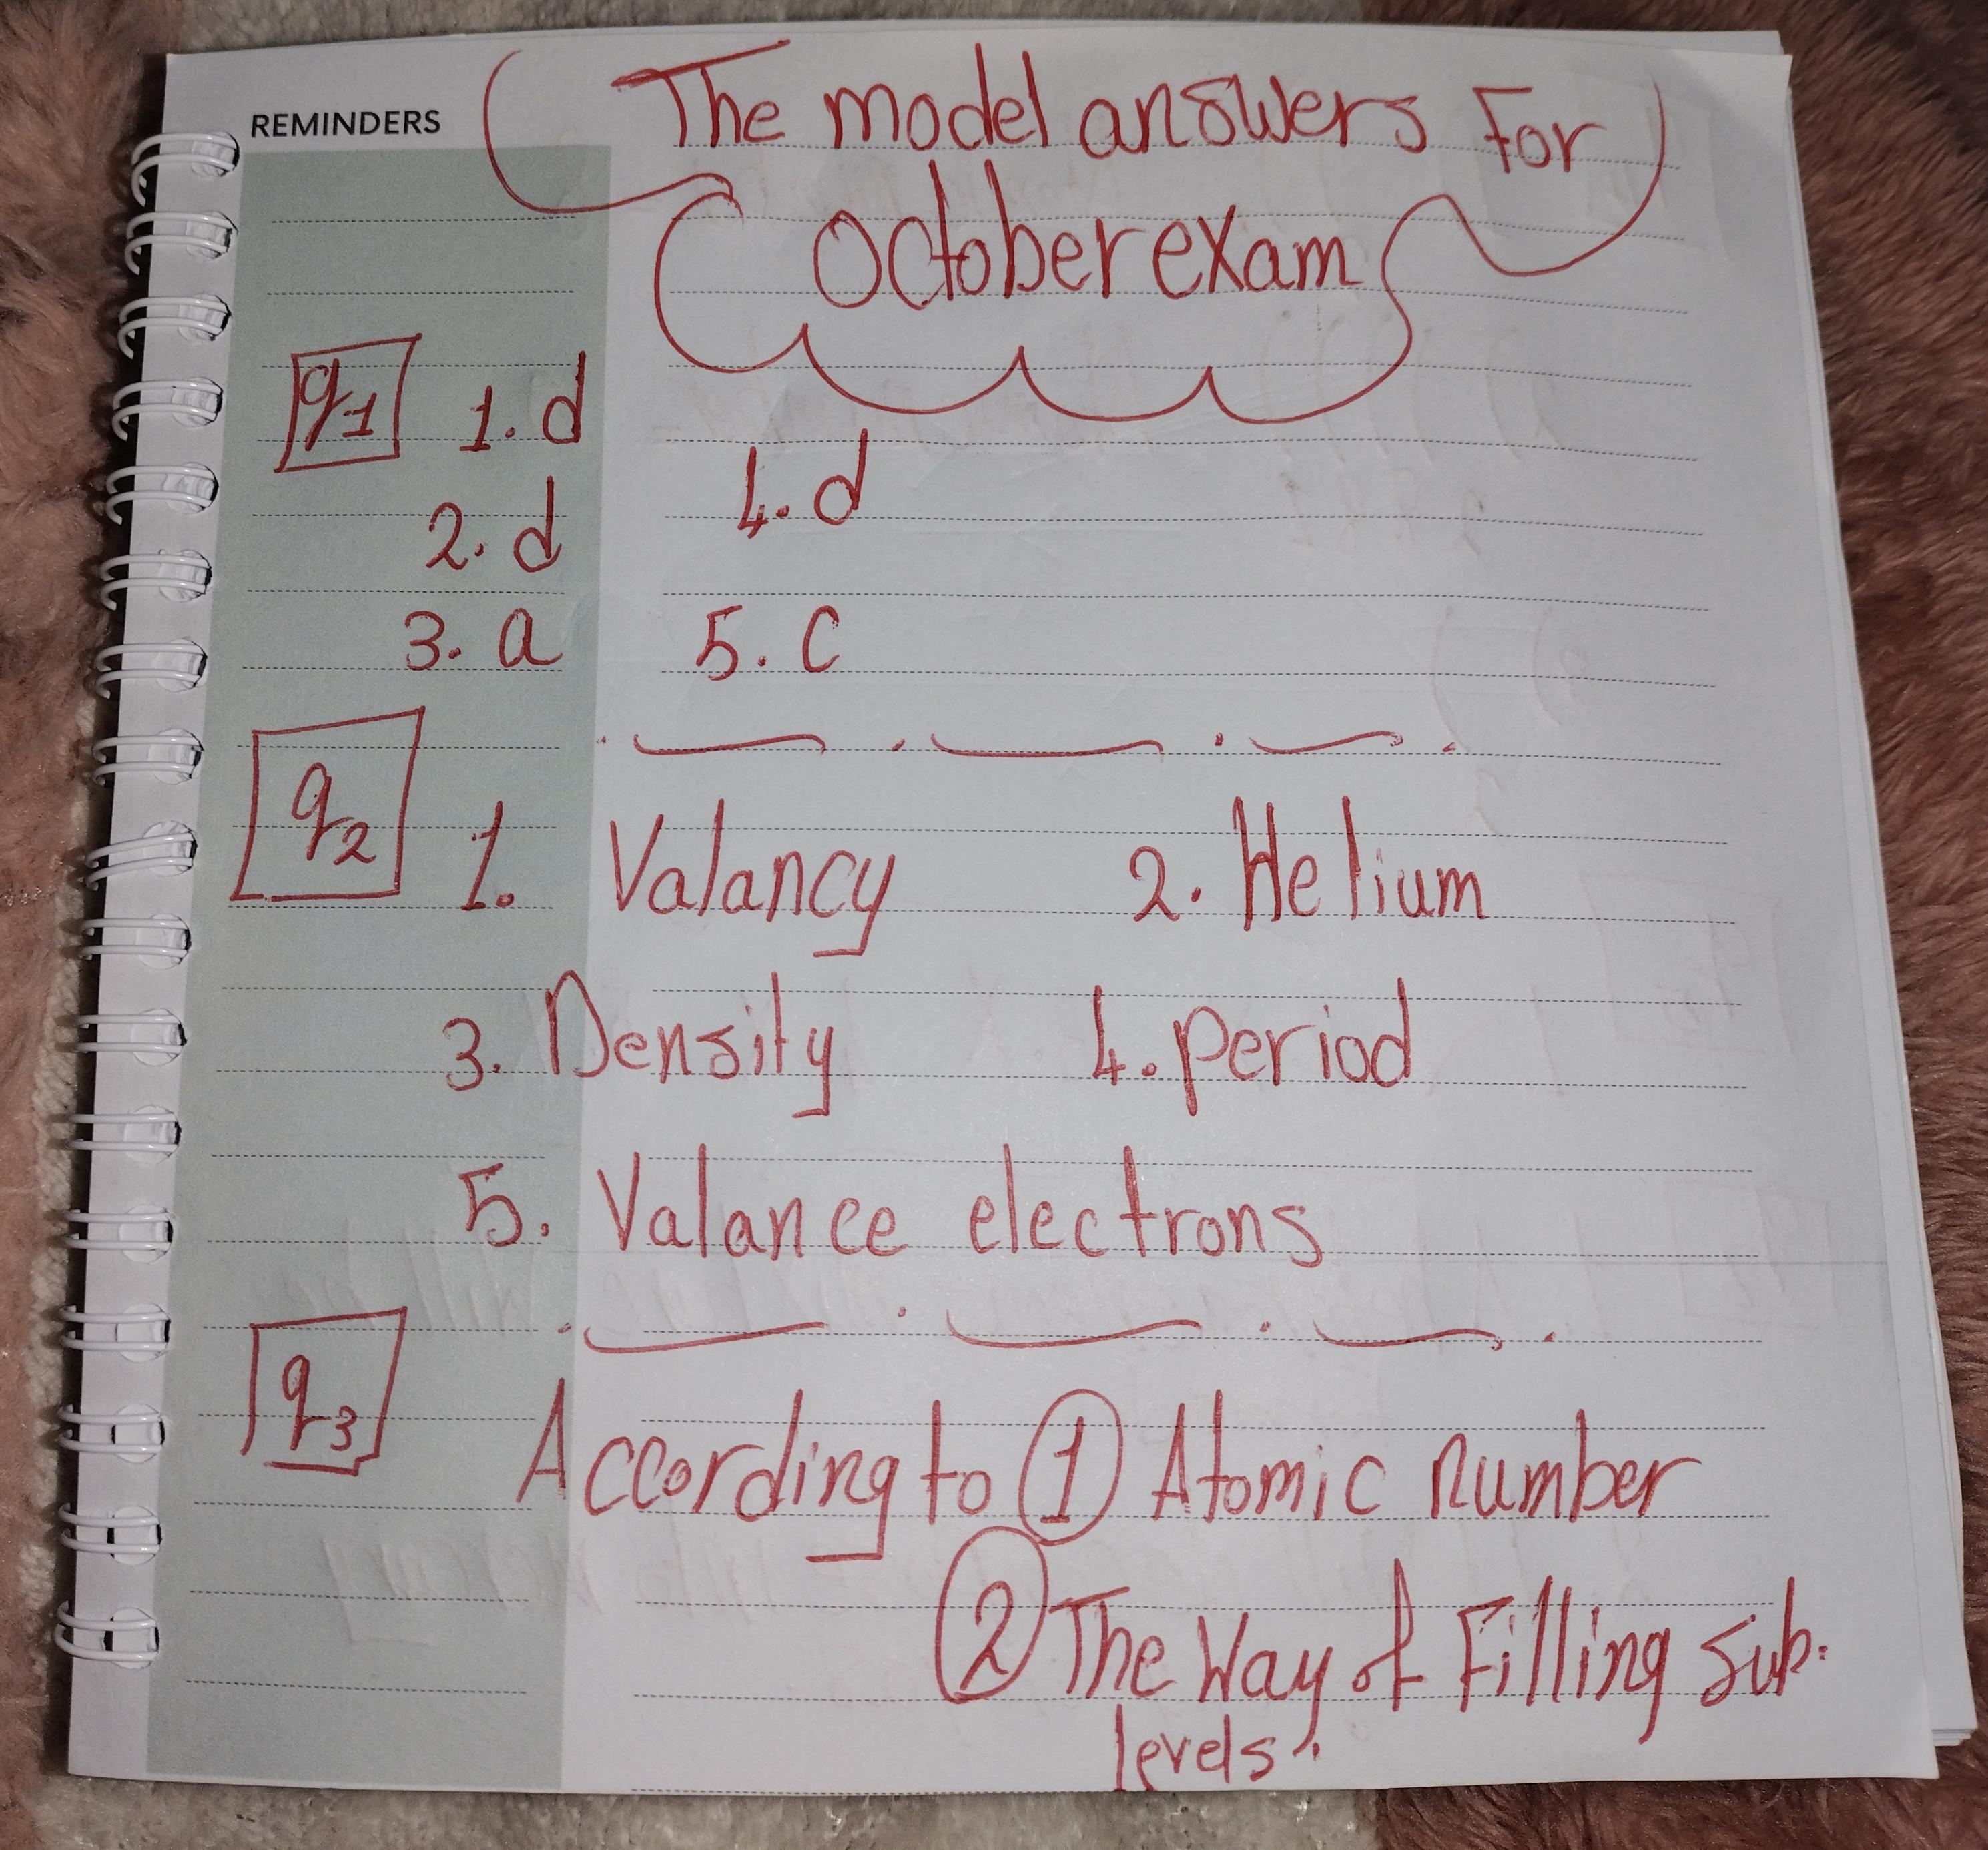 REMINDERS
The model answers For
October exam
q1 1. d
4. d
2. d
3. a 5. c
q2 1. Valancy 2. Helium
3. Density 4. period
5. Valance electrons
q3 According to 1 Atomic number
2 The Way of Filling sub.
levels.